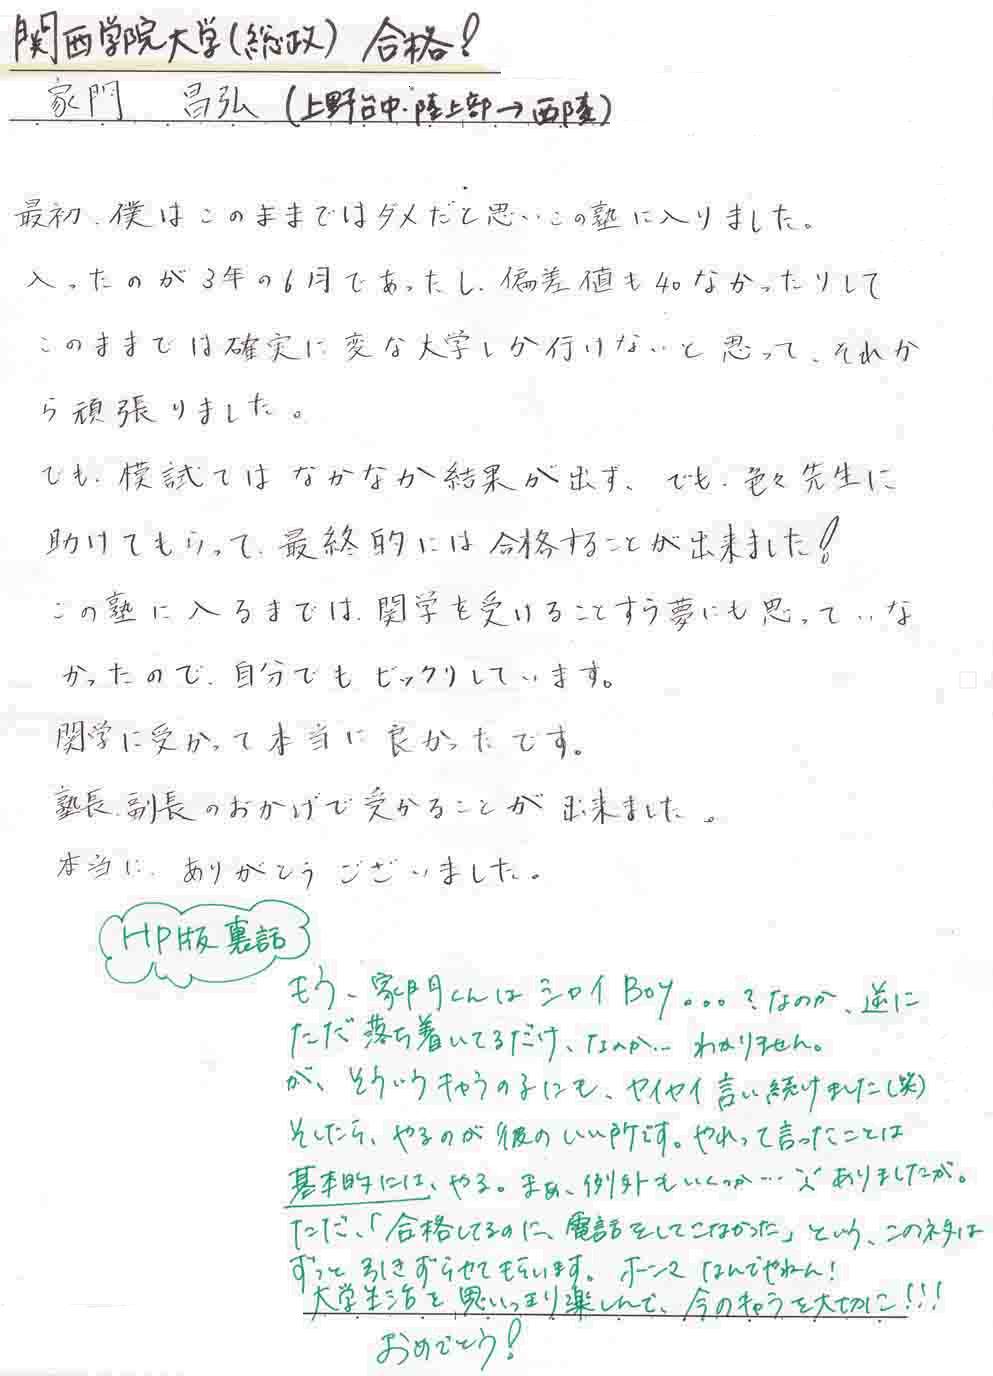 関西学院大学(総政) 合格!
家門 昌弘 (上野台中・陸上部→西陵)
最初、僕はこのままではダメだと思いこの塾に入りました。
入ったのが3年の6月であったし、偏差値も40なかったりして
このままでは確実に変な大学しか行けないと思って、それか
ら頑張りました。
でも、模試ではなかなか結果が出ず、でも、色々先生に
助けてもらって、最終的には合格することが出来ました!
この塾に入るまでは、関学を受けることすら夢にも思っていな
かったので、自分でもビックリしています。
関学に受かって本当に良かったです。
塾長、副長のおかげで受かることが出来ました。
本当に、ありがとうございました。
HP版 裏話
もう、家門くんはシャイBoy...?なのか、逆に
ただ落ち着いてるだけ、なのか… わかりません。
が、そういうキャラの子にも、ヤイヤイ言い続けました(笑)
そしたら、やるのが彼のいい所です。やれって言ったことは
基本的には、やる。まぁ、例外もいくつか… ありましたが。
ただ、「合格してるのに、電話をしてこなかった」という、このネタは
ずっと引きずらせてもらいます。ホンマなんでやねん!
大学生活を思いっきり楽しんで、今のキャラを大切に!!!
おめでとう!